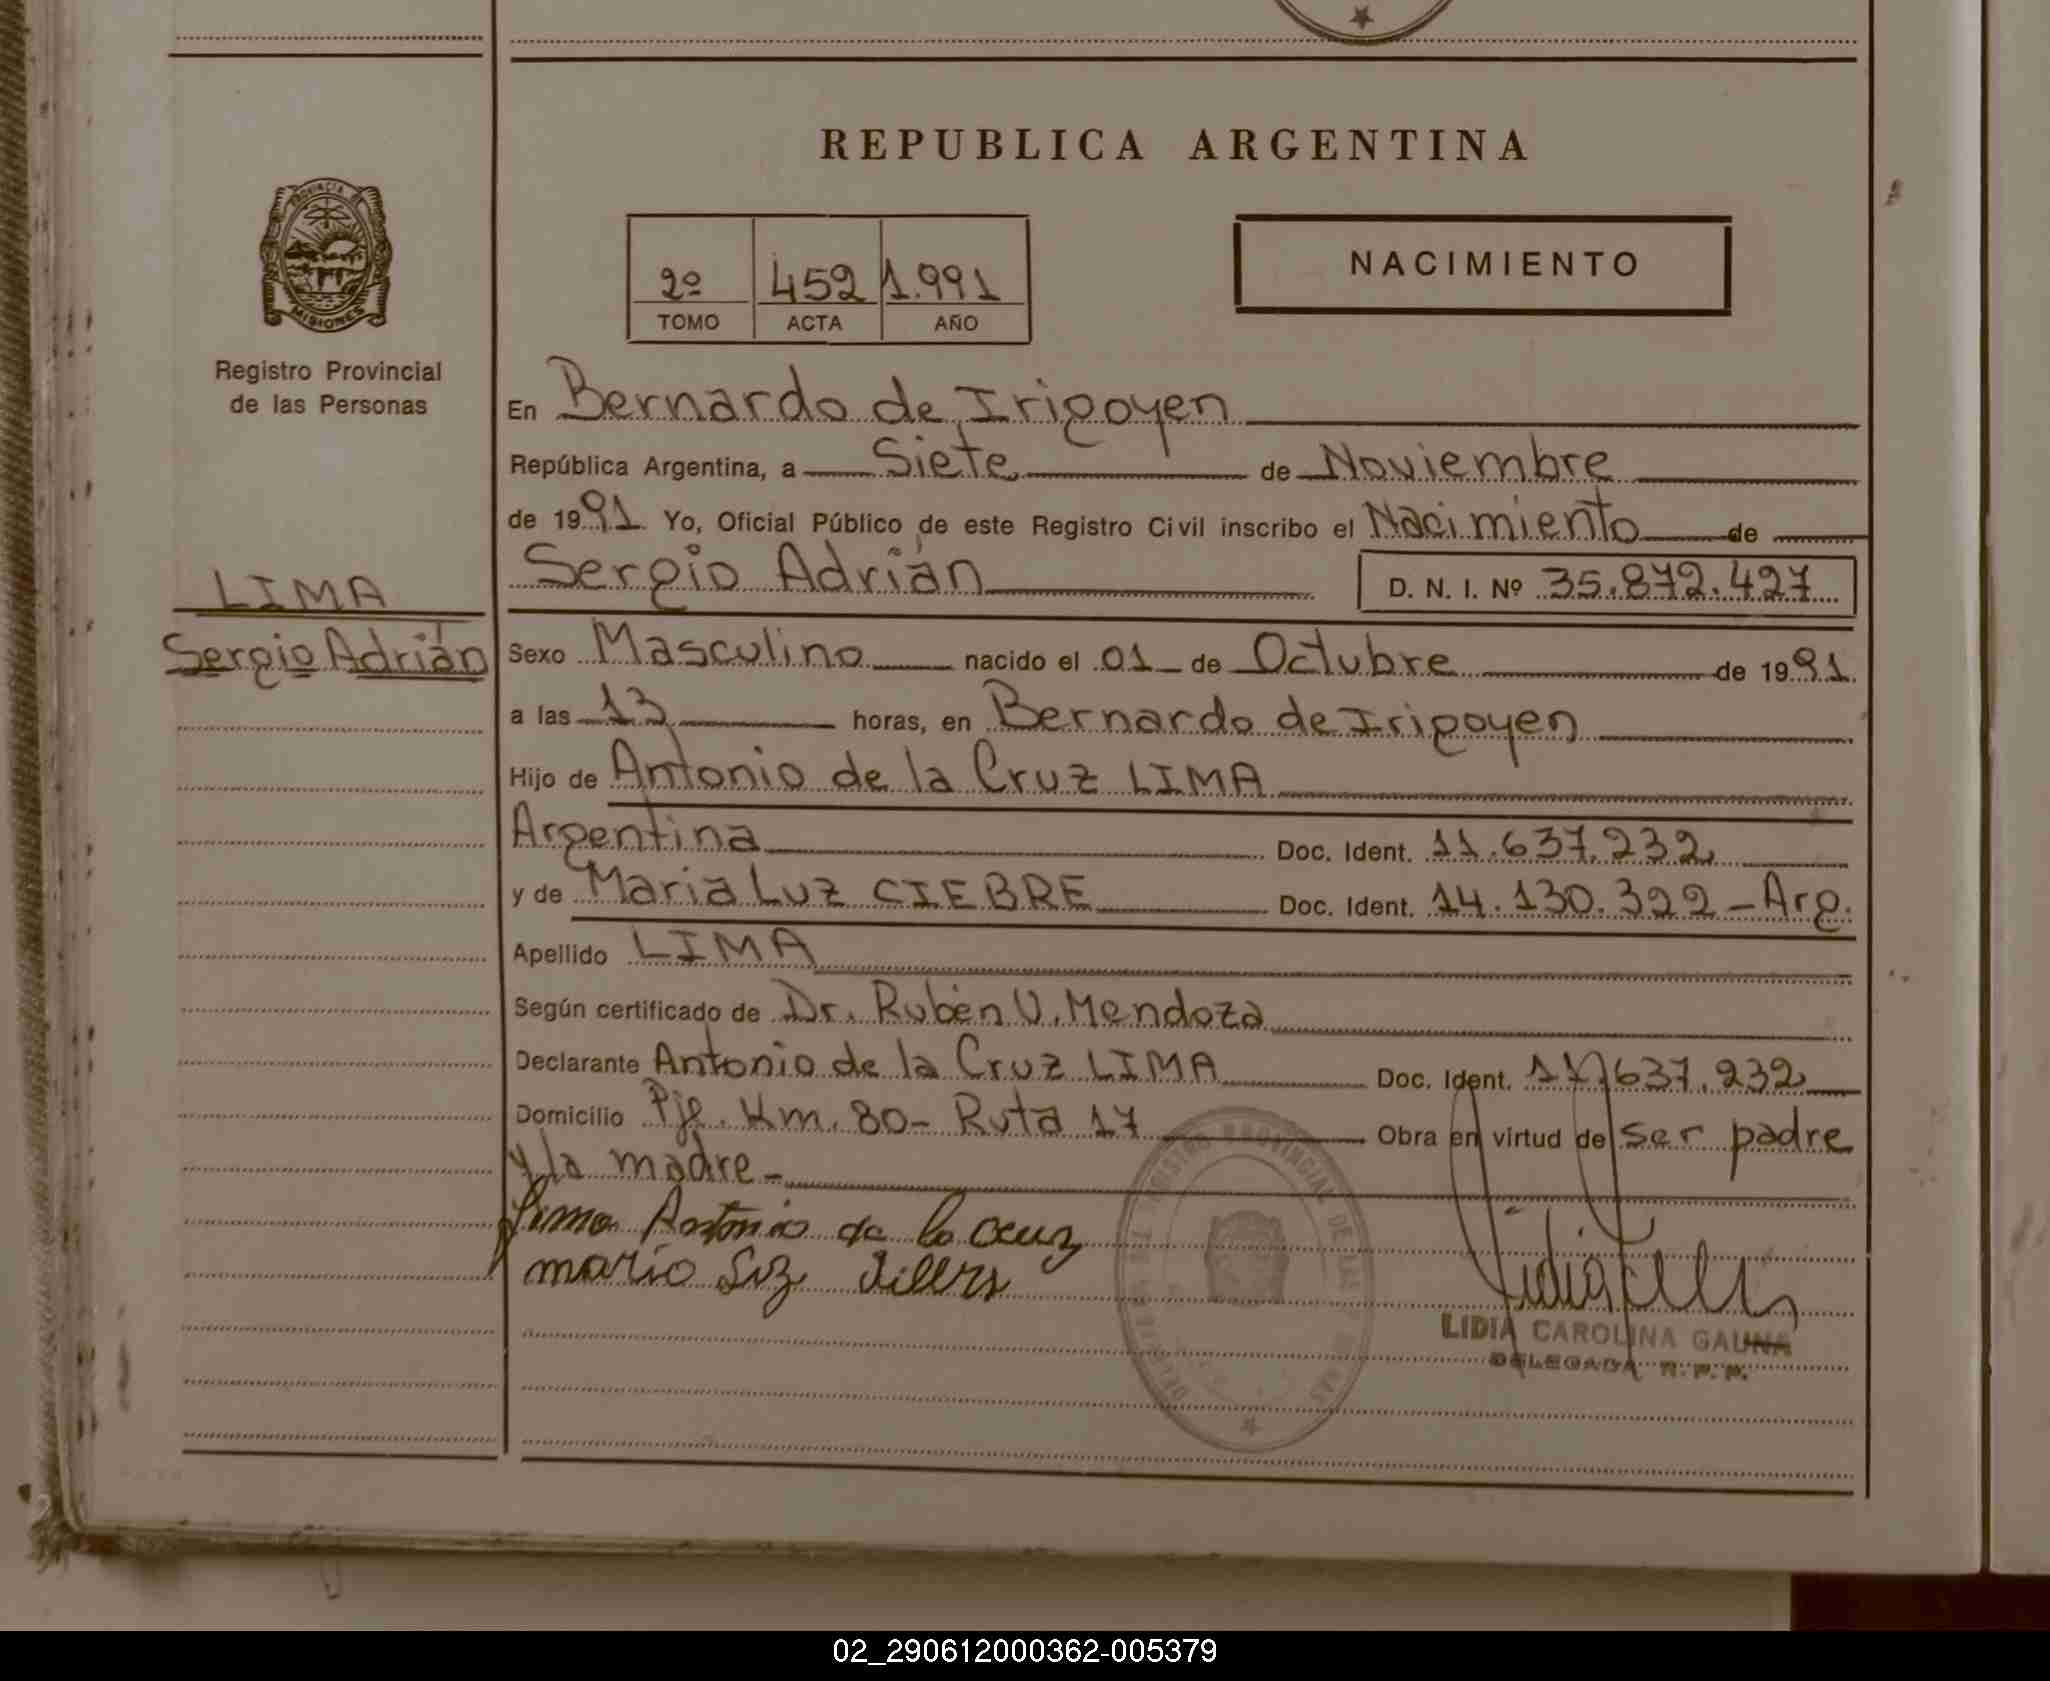 REPUBLICA ARGENTINA
PROVINCIA DE
MISIONES
Registro Provincial
de las Personas
2º 452 1.991
TOMO ACTA AÑO
NACIMIENTO
En Bernardo de Irigoyen
República Argentina, a Siete de Noviembre
de 1991 Yo, Oficial Público de este Registro Civil inscribo el Nacimiento de
Sergio Adrián D. N. I. Nº 35.872.427
LIMA
Sergio Adrián
Sexo Masculino nacido el 01 de Octubre de 1991
a las 13 horas, en Bernardo de Irigoyen
Hijo de Antonio de la Cruz LIMA
Argentina Doc. Ident. 11.637.232
y de Maria Luz CIEBRE Doc. Ident. 14.130.322 - Arg.
Apellido LIMA
Según certificado de Dr. Rubén V. Mendoza
Declarante Antonio de la Cruz LIMA Doc. Ident. 11.637.232
Domicilio Pje. Km. 80 - Ruta 17 Obra en virtud de ser padre
y la madre -
Lima Antonio de la Cruz
maria Luz
REGISTRO PROVINCIAL DE LAS
LIDIA CAROLINA GAUNA
DELEGADA R. P. P.
02_290612000362-005379